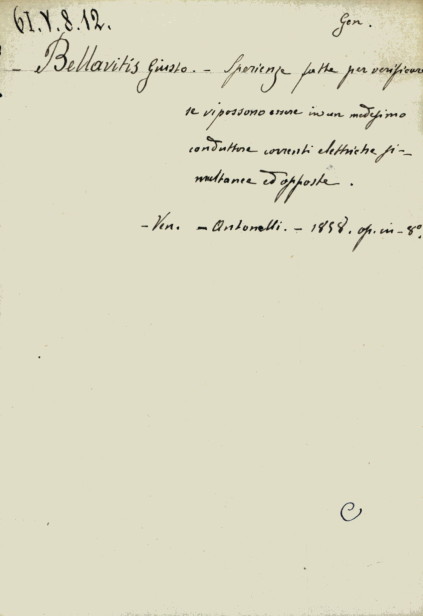 61.V.8.12.
Gen.
- Bellavitis Giusto. - Sperienze fatte per verificare
se vi possono essere in un medesimo
conduttore correnti elettriche si-
multanee ed opposte.
- Ven. - Antonelli. - 1858. op. in - 8°
C